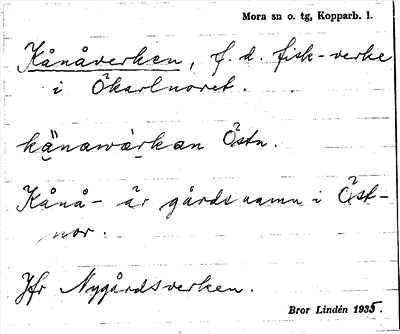 Mora sn o. tg, Kopparb. l.
Kånåverken, f. d. fisk-verke
i Ökarlnoret.
känawàrkan Östn.
Kånå- är gårdsnamn i Öst-
nor.
Jfr Nygårdsverken.
Bror Lindén 1935.